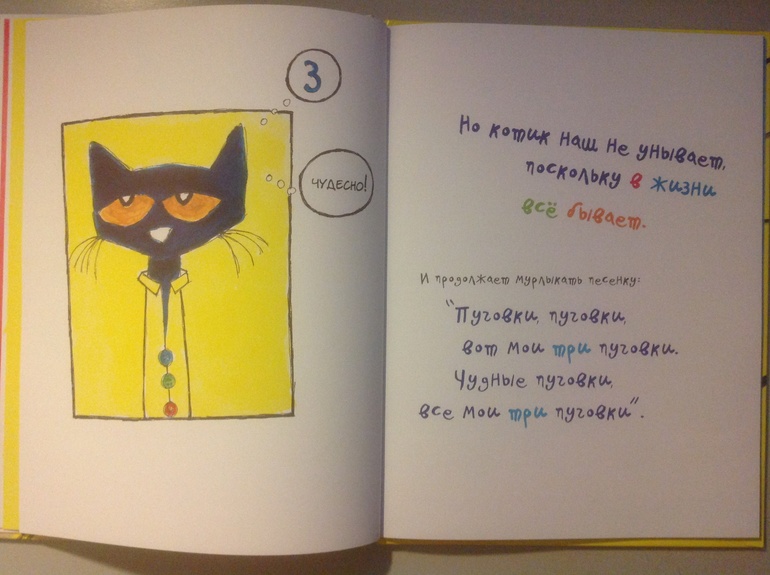 3
ЧУДЕСНО!
Но котик наш не унывает,
поскольку в жизни
всё бывает.
И продолжает мурлыкать песенку:
"Пуговки, пуговки,
вот мои три пуговки.
Чудные пуговки,
все мои три пуговки".